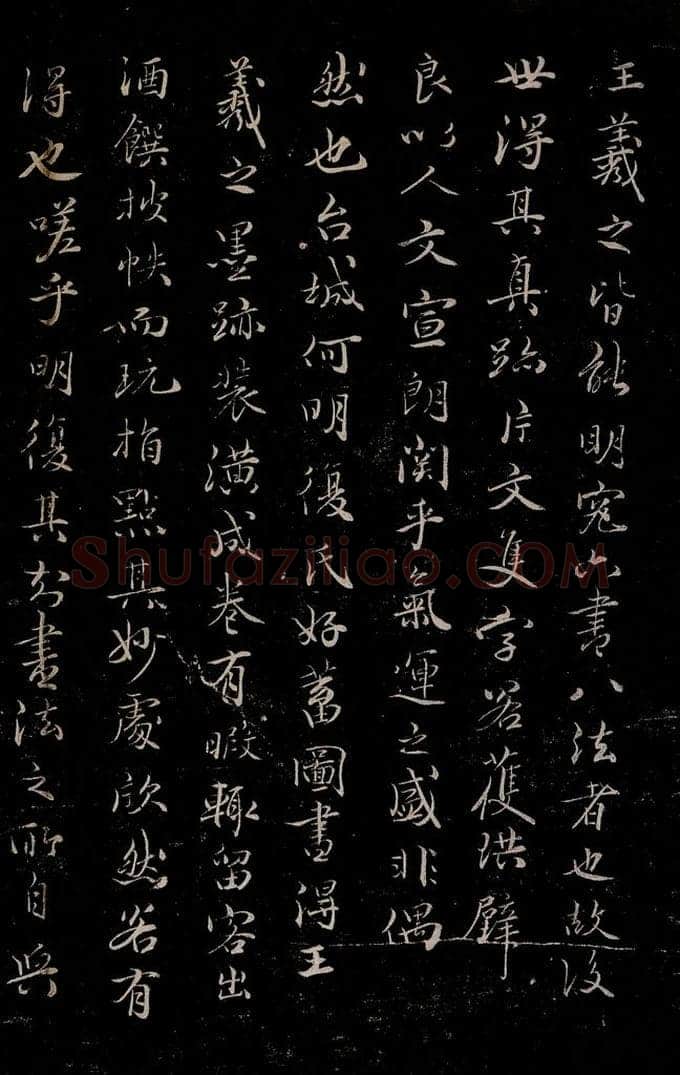 王羲之皆能明究六書八法者也故後
世得其真跡片文隻字若獲珙璧
良以人文宣朗関乎氣運之盛非偶
然也台城何明復氏好蓄圖書得王
羲之墨跡裝潢成卷有暇輒留客出
酒饌披帙而玩指點其妙處欣然若有
得也嗟乎明復其知書法之所自與
Shufaziliao.COM